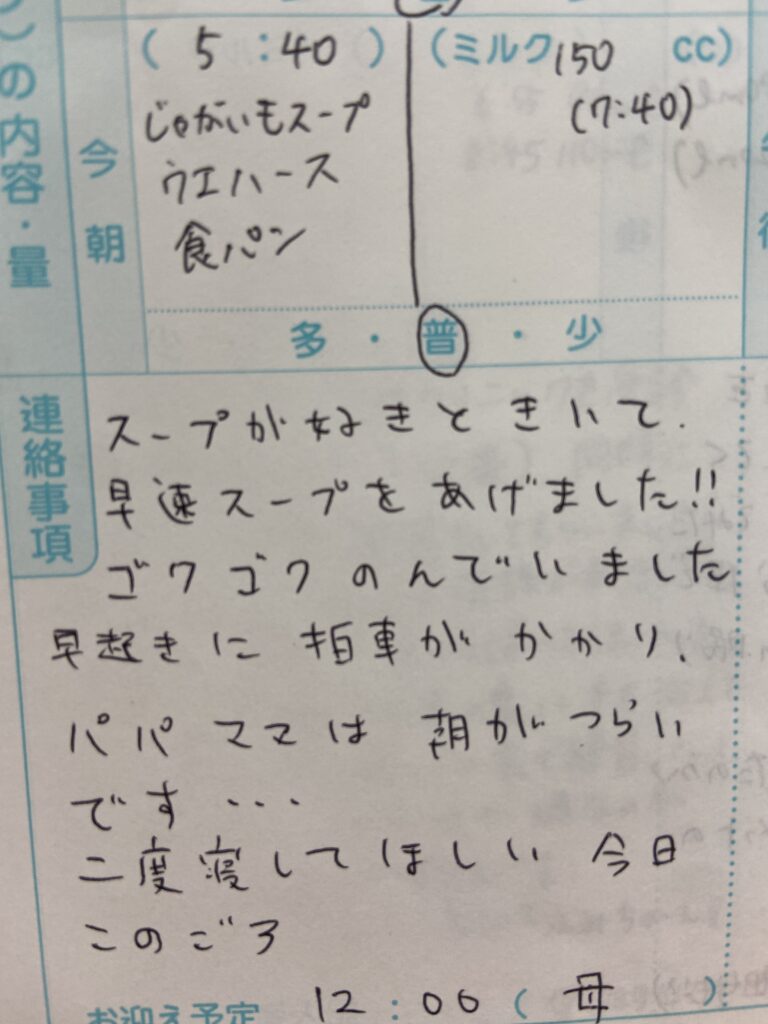 の内容・量
今朝
( 5 : 40 )
じゃがいもスープ
ウエハース
食パン
(ミルク 150 cc)
(7:40)
多・普・少
連絡事項
スープが好きときいて、
早速スープをあげました!!
ゴクゴクのんでいました
早起きに拍車がかかり、
パパママは朝がつらい
です・・・
二度寝してほしい今日
このごろ
お迎え予定 12:00(母)